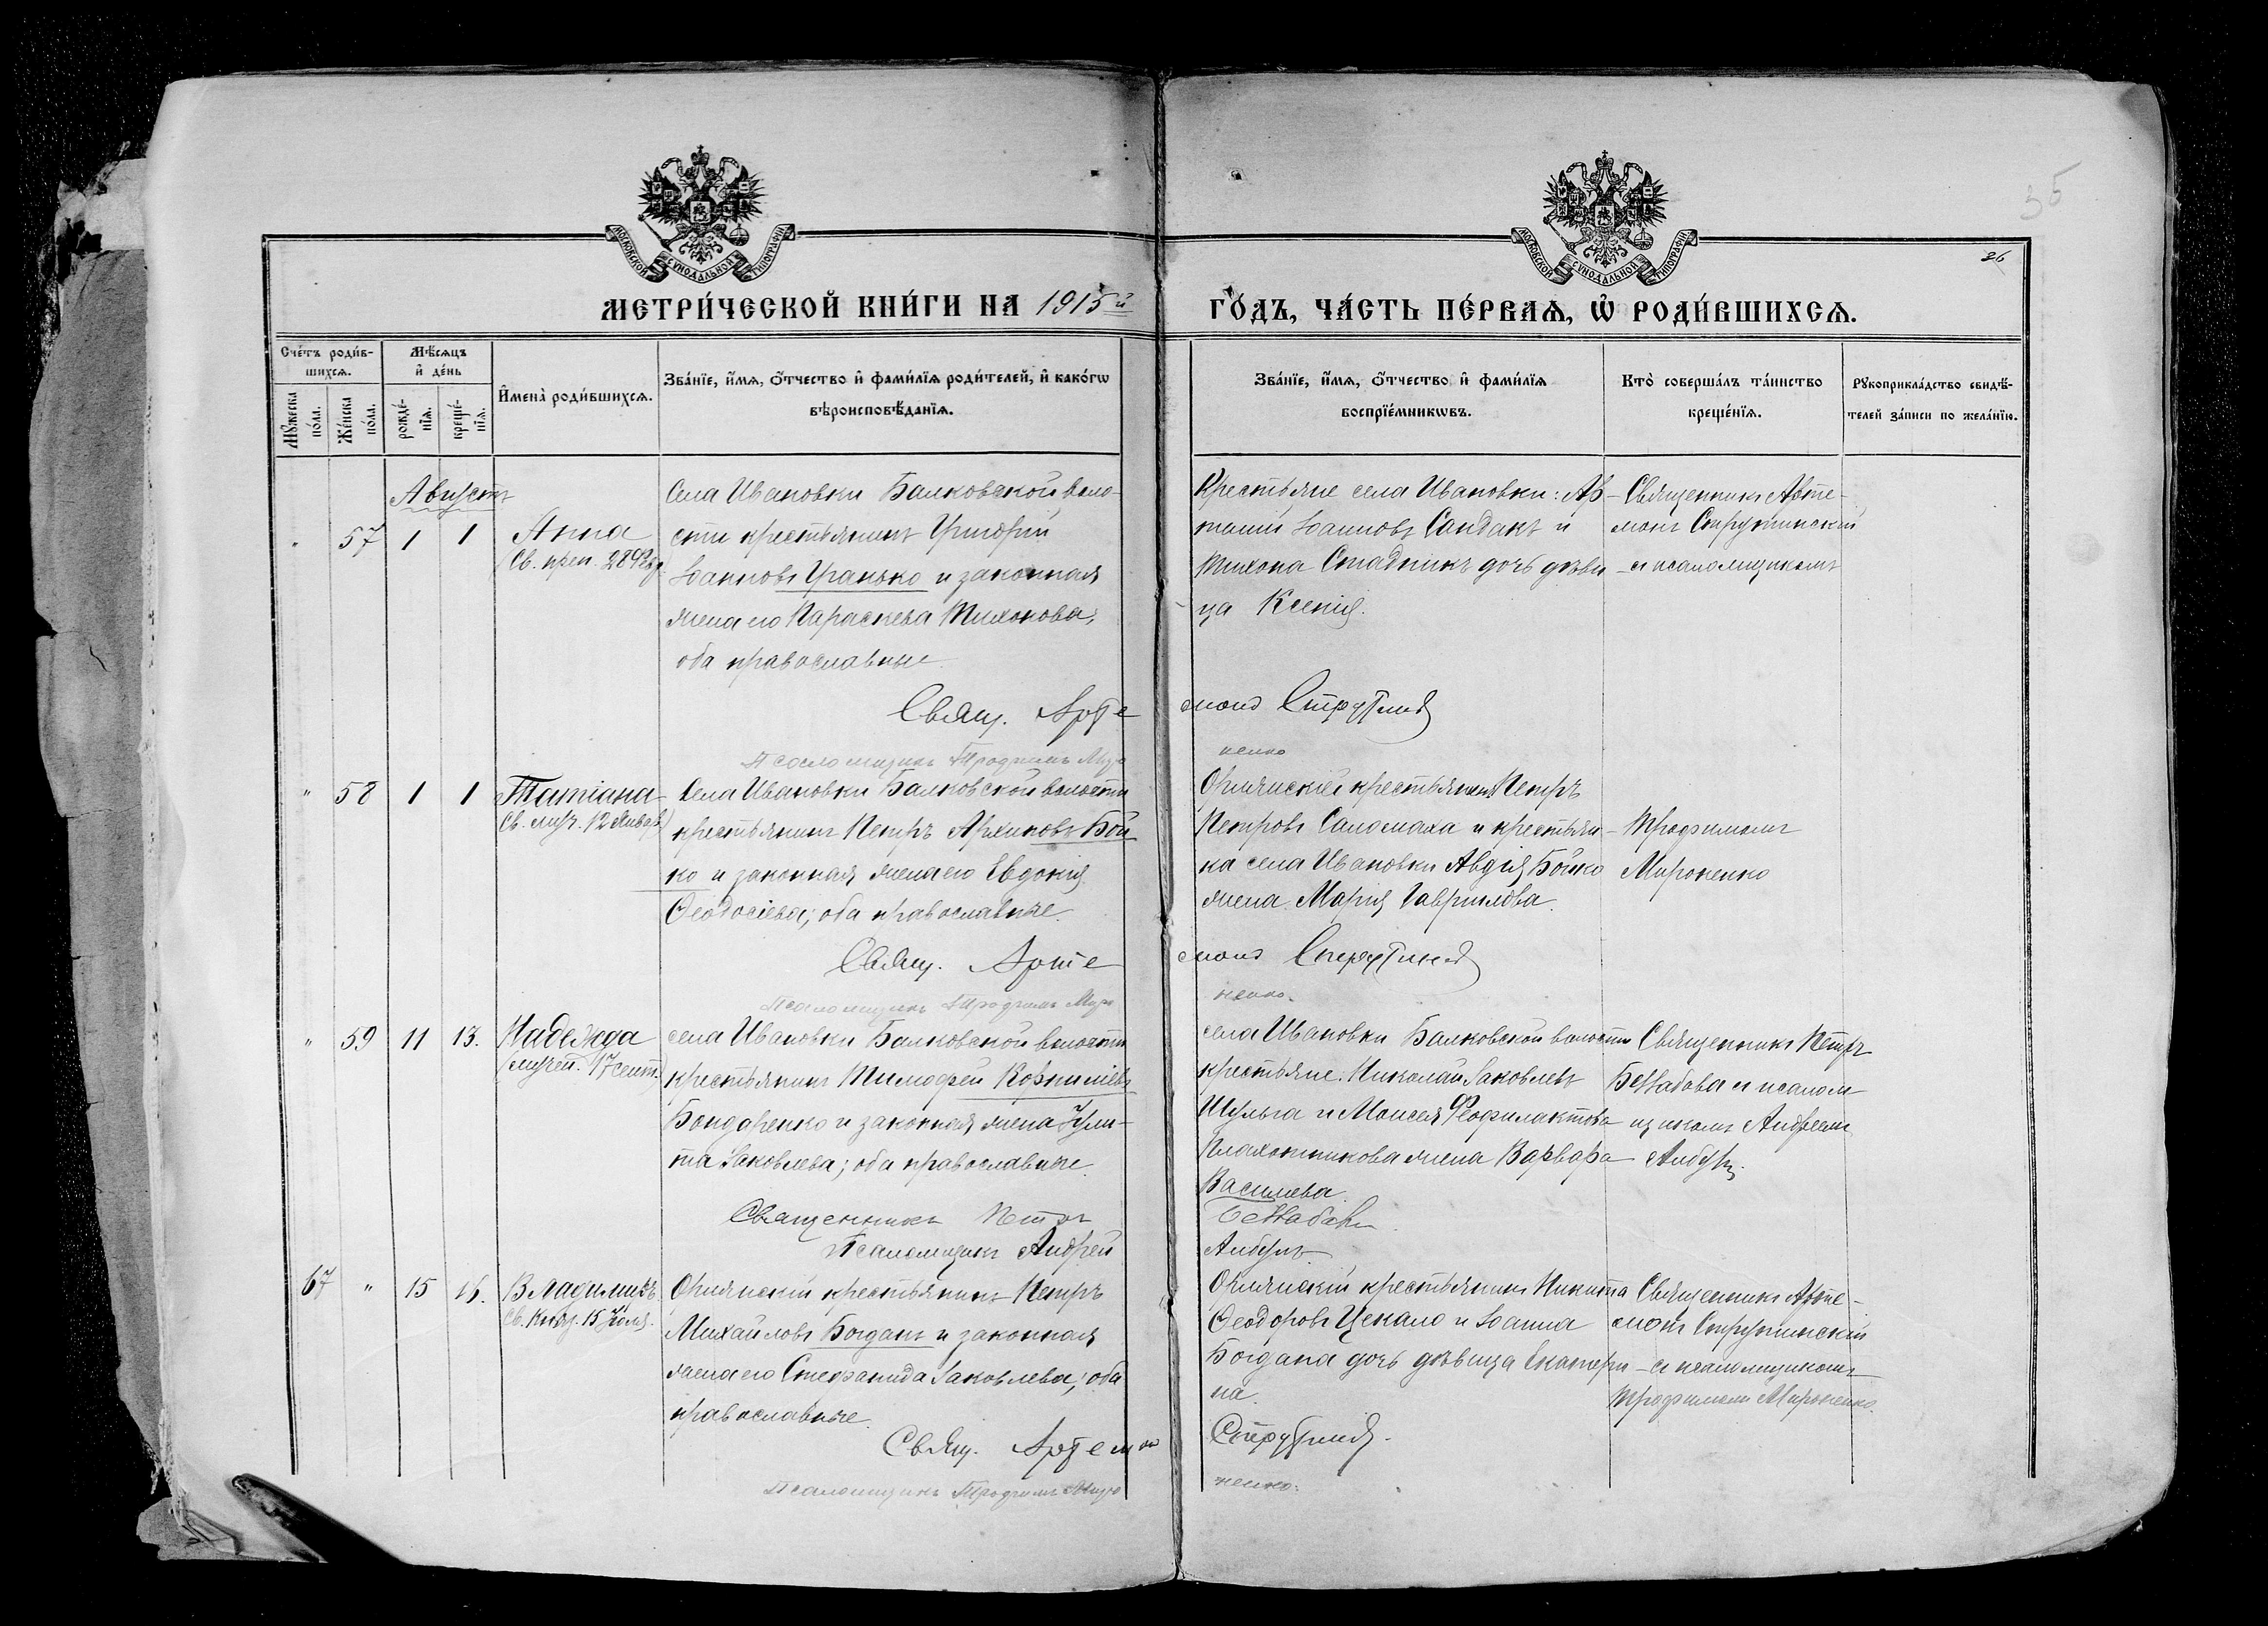 35
26
МОСКОВСКОЙ СѴНОДАЛЬНОЙ ТИПОГРАФІИ
МОСКОВСКОЙ СѴНОДАЛЬНОЙ ТИПОГРАФІИ
МЕТРИ́ЧЕСКОЙ КНИ́ГИ НА 1915й
ГО́ДЪ, ЧА́СТЬ ПЕ́РВАѦ, Ѽ РОДИ́ВШИХСѦ.
Сче́тъ роди́в-
шихсѧ.
Мꙋ́жеска по́ла.
Же́нска по́ла.
Мѣ́сѧцъ
и҆ де́нь
рожде́-
нїѧ.
креще́-
нїѧ.
И҆мена̀ роди́вшихсѧ.
Зва́нїе, и҆́мѧ, ѻ҆́тчество и҆ фами́лїѧ роди́телей, и҆ како́гѡ
вѣроисповѣ́данїѧ.
Зва́нїе, и҆́мѧ, ѻ҆́тчество и҆ фами́лїѧ
воспрїе́мникѡвъ.
Кто̀ соверша́лъ та́инство
креще́нїѧ.
Рꙋкоприкла́дство свидѣ́-
телей за́писи по жела́нїю.
Августъ
" 57 1 1 Анна
Св. преп.
Села Ивановки Балковской воло-
сти крестьянинъ Григорій
Іоанновъ Гранько и законная
жена его Параскева Тихонова;
оба православные.
Крестьяне села Ивановки: Ар-
Іоанновъ Сандакъ и
Тихона Стадникъ дочь дѣви-
ца Ксенія.
Священникъ Арте-
монъ Струтинскій
съ псаломщикомъ
Свящ. Арте
монъ Струтинскій
Псаломщикъ Трофимъ Миро
ненко
" 58 1 1 Татіана
Св. муч. 12 Январ.
Села Ивановки Балковской волости
крестьянинъ Петръ Архиповъ Бой-
ко и законная жена его Евдокія
Ѳеодосіева; оба православные.
крестьянинъ Петръ
Петровъ Саломаха и крестьян-
ка села Ивановки Авдія Бойко
жена Марія Гаврилова.
Трофимомъ
Мироненко
Свящ. Арте
монъ Струтинскій
Псаломщикъ Трофимъ Миро
ненко.
" 59 11 13. Надежда
мучен. 17 сент.
села Ивановки Балковской волости
крестьянинъ Тимофей Корниліевъ
Бондаренко и законная жена Іули-
та Іаковлева; оба православные.
села Ивановки Балковской волости
крестьяне: Николай Іаковлевъ
Шульга и Моисея Ѳеофилактова
Плахотникова жена Варвара
Василіева.
Священникъ Петръ
и псалом-
щикомъ Андреемъ
Священникъ Петръ
Псаломщикъ Андрей
67 " 15 16. Владиміръ
Св. Княз. 15 Іюля.
крестьянинъ Петръ
Михайловъ Богданъ и законная
жена его Стефанида Іаковлева; оба
православные.
крестьянинъ Никита
Ѳеодоровъ Цекало и Іоанна
Богдана дочь дѣвица Екатери-
на.
Священникъ Арте-
монъ Струтинскій
съ псаломщикомъ
Трофимомъ Мироненко.
Свящ. Артемон
Струтинскій.
Псаломщикъ Трофимъ Миро
ненко.